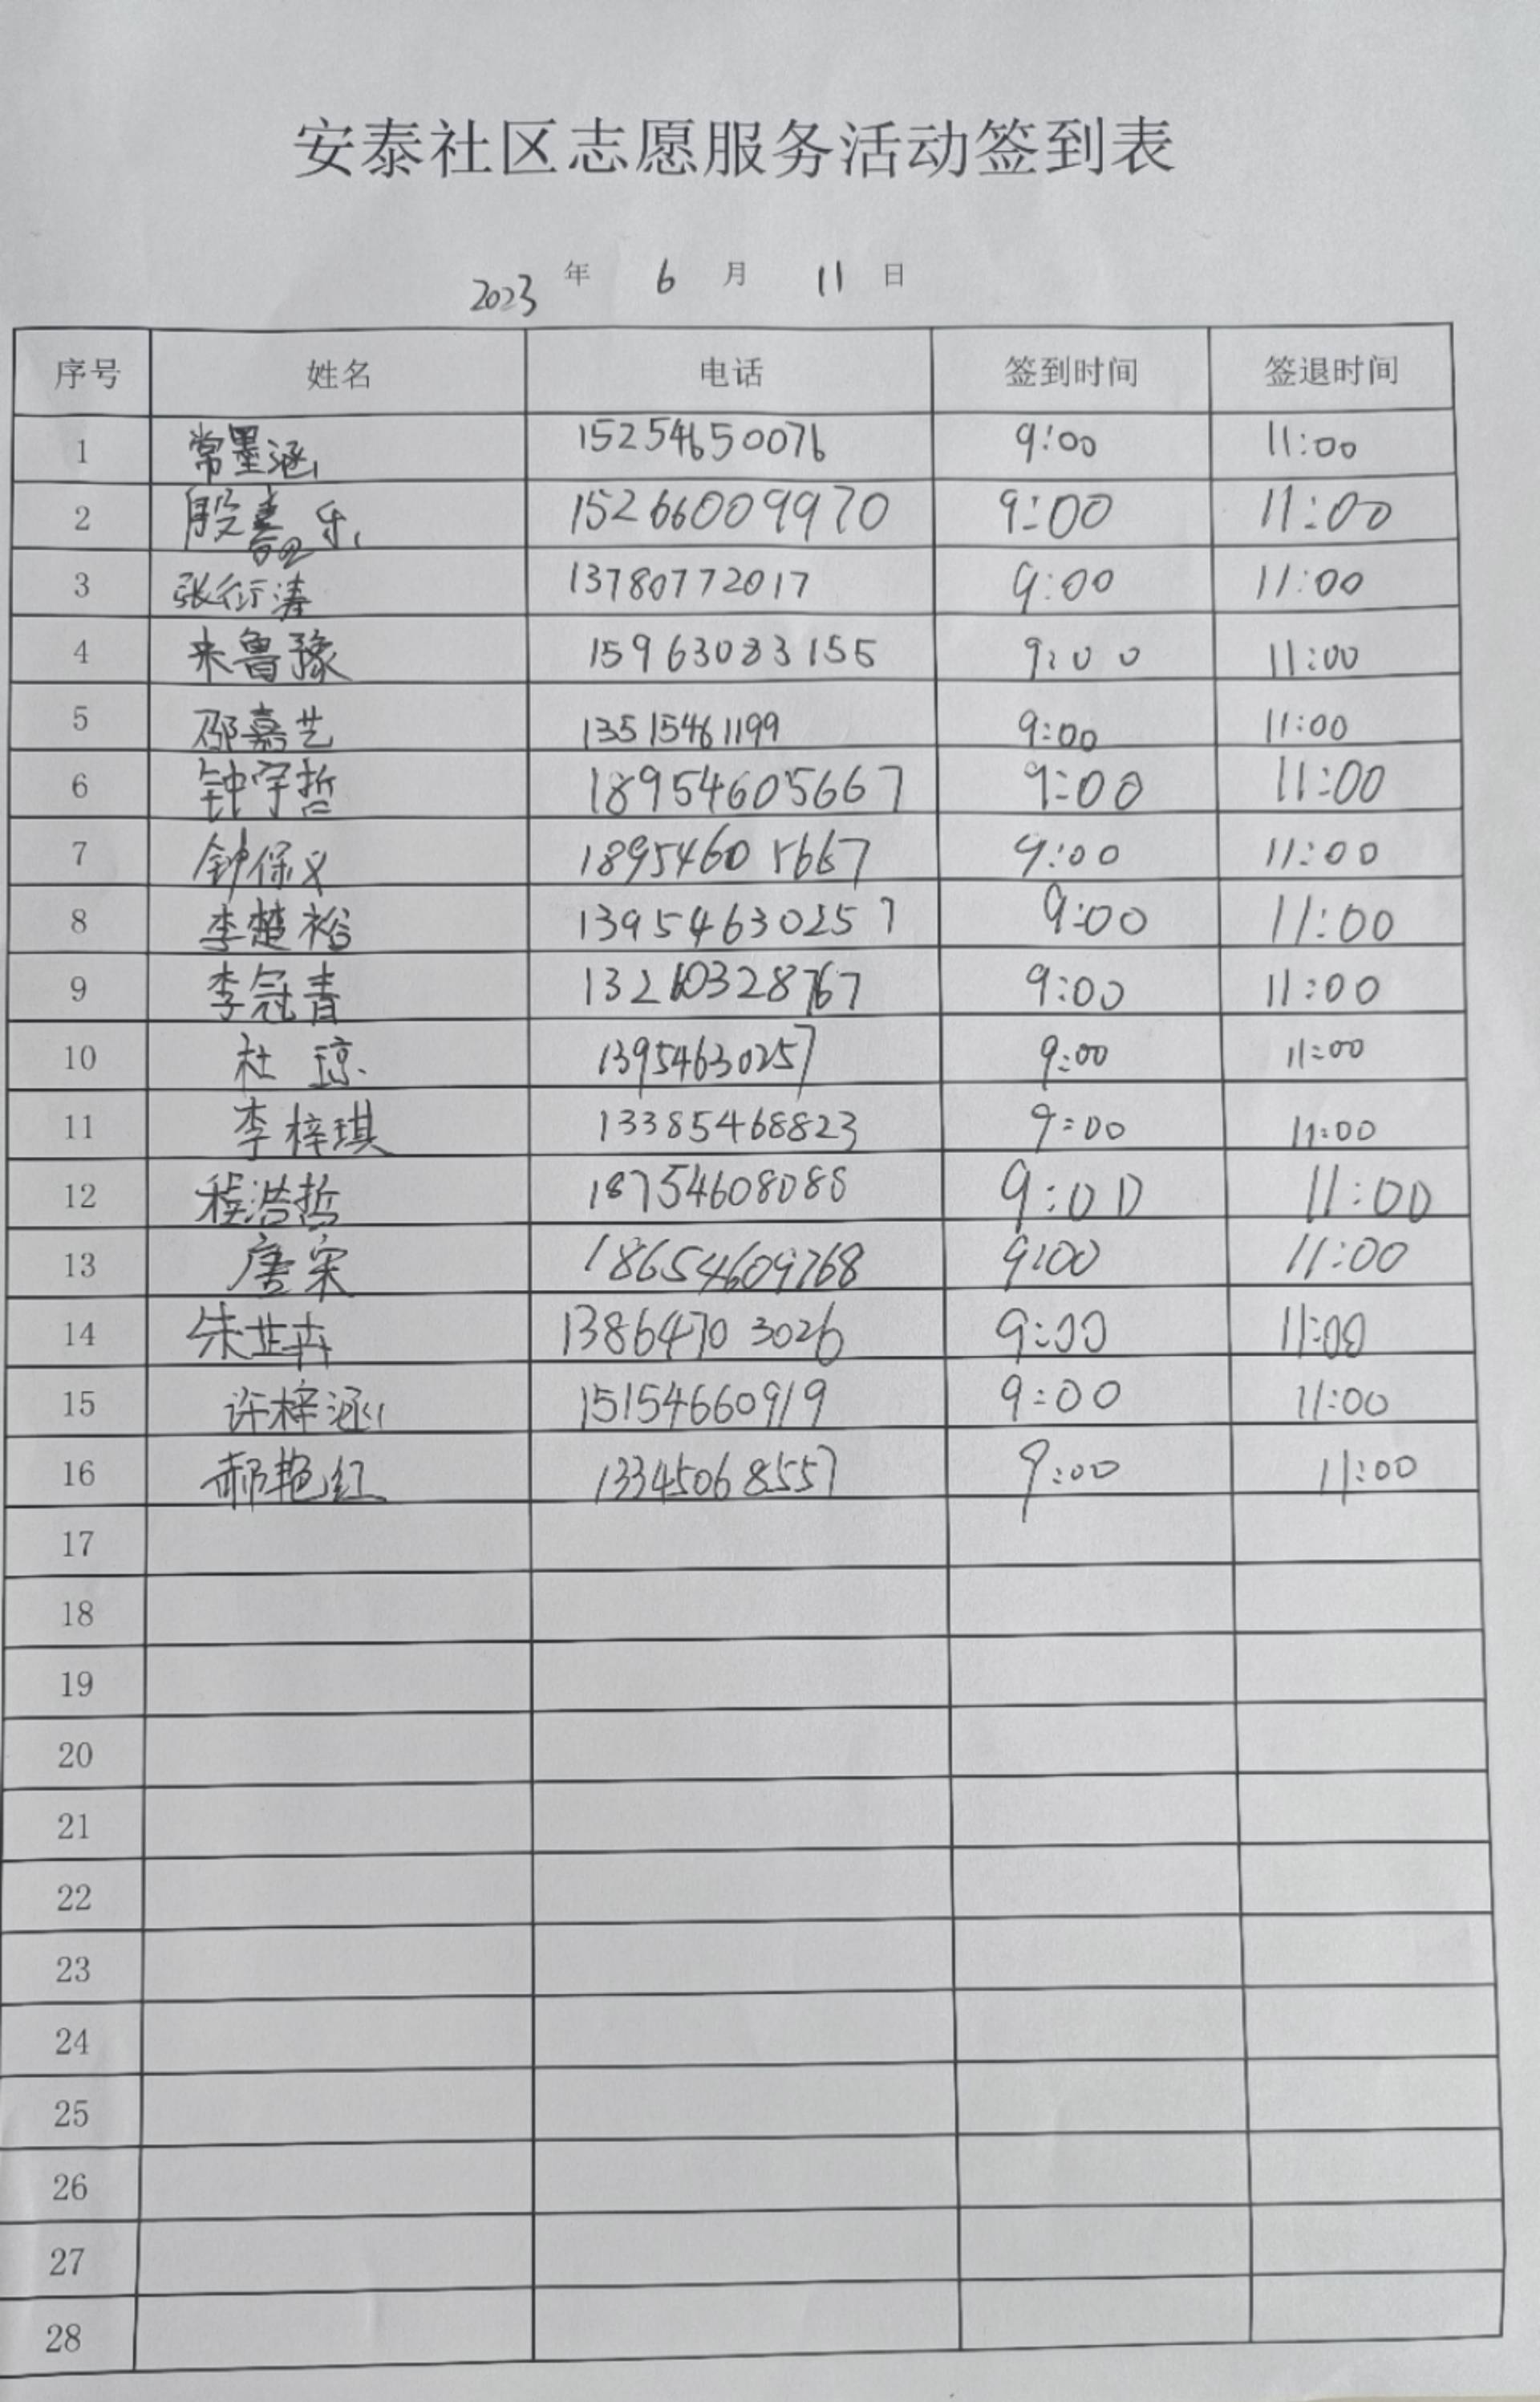 安泰社区志愿服务活动签到表
2023 年 6 月 11 日
序号 姓名 电话 签到时间 签退时间
1 常墨涵 15254650076 9:00 11:00
2 殷喜乐 15266009970 9:00 11:00
3 张衍涛 13780772017 9:00 11:00
4 来鲁豫 15963083155 9:00 11:00
5 邵嘉艺 13515461199 9:00 11:00
6 钟宇哲 18954605667 9:00 11:00
7 钟保义 18954605667 9:00 11:00
8 李楚裕 13954630257 9:00 11:00
9 李冠青 9:00 11:00
10 杜琼 13954630257 9:00 11:00
11 李梓琪 13385468823 9:00 11:00
12 程浩哲 18754608088 9:00 11:00
13 唐宋 18654609768 9:00 11:00
14 朱芷卉 13864703026 9:00 11:00
15 许梓涵 15154660919 9:00 11:00
16 郝艳红 13345068557 9:00 11:00
17
18
19
20
21
22
23
24
25
26
27
28